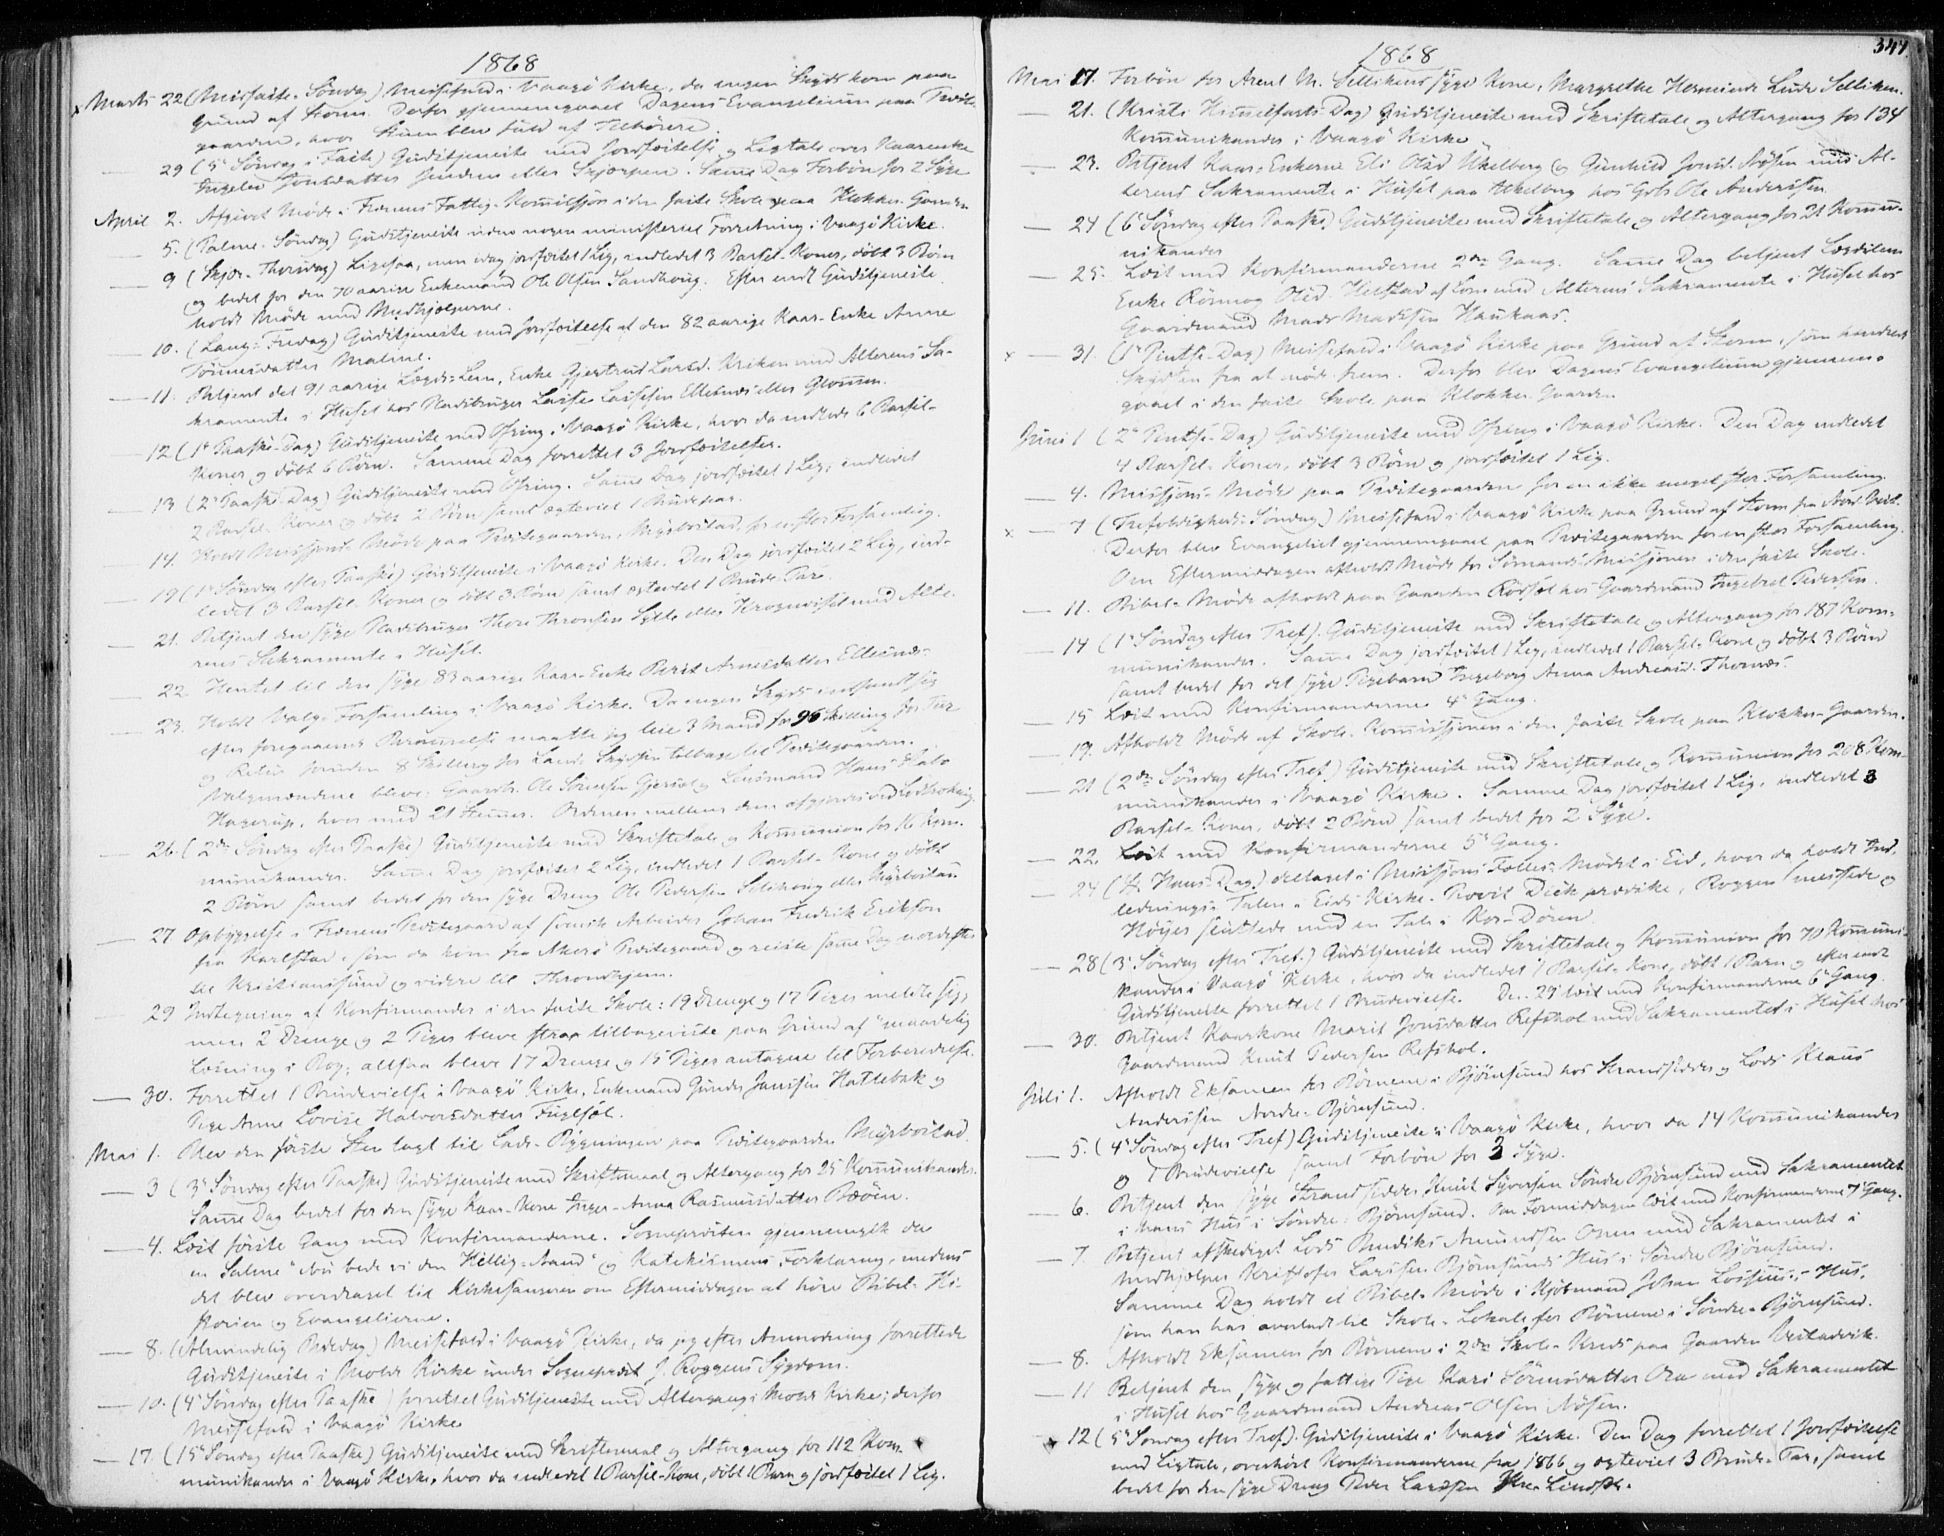 1868
Marts 22 (Midfaste-Søndag) Messefald i Vaagö Kirke, da ingen Skyds kom paa
Grund af Storm. Derfor gjennemgaaet Dagens Evangelium paa Præste-
gaarden, hvor Stuen blev fuld af Tilhörere.
— 29 (5te Søndag i Faste) Gudstjeneste med Jordfæstelse og Ligtale over Kaarenke
Ingeler Jonsdatter eller Skjorpen. Samme Dag Forbön for 2 Syge
April 2. Afgivet Möde i Frænens Fattig-Kommission i den faste Skole paa Klokker-Gaarden
5. (Palme-Söndag) Gudstjeneste uden nogen ministeriel Forretning i Vaagö Kirke.
— 9 (Skjær-Thorsdag) Ligesaa, men idag jordfæstet 1 Lig, indledet 3 Barsel-Koner, döbt 3 Börn
og bedet for den 70 aarige Enkemand Ole Olsen Sandhoug. Efter endt Gudstjeneste
holdt Möde med Medhjælperne.
— 10. (Lang-Fredag) Gudstjeneste med Jordfæstelse af den 82 aarige Kaar-Enke Anne
Tönnesdatter Malme.
— 11. Betjent det 91 aarige Lægds-Lem, Enke Gjertrud Larsd. Kriken med Alterens Sa-
kramente i Huset hos Nedsbruger Lasse Lassesen Ellebust eller Grommen.
— 12 (1ste Paaske-Dag) Gudstjeneste med Ofring i Vaagö Kirke, hvor da indledt 6 Barsel-
Koner og döbt 6 Börn. Samme Dag forrettet 3 Jordfæstelser.
— 13 (2den Paaske-Dag) Gudstjeneste med Ofring. Samme Dag jordfæstet 1 Lig, indledet
2 Barsel-Koner og döbt 2 Börn samt ægteviet 1 Brudepar.
— 14. Holdt Missions-Möde paa Præstegaarden, Myrbostad, for en stor Forsamling.
— 19 (1ste Söndag efter Paaske) Gudstjeneste i Vaagö Kirke. Den Dag jordfæstet 2 Lig, ind-
ledet 3 Barsel-Koner og döbt 3 Börn samt ægteviet 1 Brude-Par.
— 21. Betjent den syge Nedsbruger Thore Thronsen Sylte eller med Alte-
rens Sakramente i Huset.
— 22. Hentet til den syge 83 aarige Kaar-Enke Berit Arnesdatter Ellesund.
— 23. Holdt Valg-Forsamling i Vaagö Kirke. Da ingen Skyds indfandt sig
efter foregaaende Berammelse maatte jeg leie 3 Mand for 96 Skilling for Tur
og Retur foruden 8 Skilling for Lands Skydsen tilbage til Præstegaarden.
Valgmændene bleve: Gaardb. Ole Simesen Gjersvol og Lensmand Hans Falo
Hagerup, hver med 21 Stemmer. Ordenen mellem dem afgjordes ved Lodtrækning.
— 26. (2den Söndag efter Paaske) Gudstjeneste med Skriftetale og Kommunion for 16 Kom-
munikanter. Samme Dag jordfæstet 2 Lig, indledet 1 Barsel-Kone og döbt
2 Börn samt bedet for den syge Dreng Ole Pedersen Solihoug eller Myrbostad.
— 27. Opbyggelse i Frænens Præstegaard af svensk Arbeider Johan Fredrik Erikson
fra Karlstad, som da kom fra Akerö Præstegaard og reiste samme Dag nordefter
til Kristianssund og videre til Throndhjem.
— 29 Indtegning af Konfirmander i den faste Skole: 19 Drenge og 17 Piger meldte sig,
men 2 Drenge og 2 Piger bleve strax tilbageviste paa Grund af "maadelig
Læsning i Bog; altsaa bleve 17 Drenge og 15 Piger antagne til Forberedelse.
— 30. Forrettet 1 Brudevielse i Vaagö Kirke, Enkemand Gunder Janssen Hattebak og
Pige Anne Lovise Halvorsdatter Fuglsöt.
Mai 1. Blev den förste Sten lagt til Lade-Bygningen paa Præstegaarden Myrbostad.
— 3 (3de Söndag efter Paaske) Gudstjeneste med Skriftemaal og Altergang for 25 Kommunikanter.
Samme Dag bedet for den syge Kaar-Kone Inger-Anna Rasmusdatter Bæöen.
— 4. Læst förste Gang med Konfirmanderne. Sognepræsten gjennemgik da
en Salme "Nu bede vi den Hellig-Aand" og Katekismens Forklaring, medens
det blev overdraget til Kirkesangeren om Eftermiddagen at höre Bibel-Hi-
storien og Evangelierne.
— 8. (Almindelig Bededag) Messefald i Vaagö Kirke, da jeg efter Anmodning forrettede
Gudstjeneste i Molde Kirke under Sognepræst J. Roggens Sygdom.
— 10. (4de Söndag efter Paaske) forrettet Gudstjeneste med Altergang i Molde Kirke; derfor
Messefald i Vaagö Kirke
— 17. (15de Söndag efter Paaske) Gudstjeneste med Skriftemaal og Altergang for 112 Kom-
munikanter i Vaagö Kirke, hvor da indledet 1 Barsel-Kone, döbt 1 Barn og jordfæstet 1 Lig.
347.
1868
Mai 17. Forbön for Arent M. Sellikens syge Kone, Margrethe Hermine Linde Selliken.
— 21. (Kristi Himmelfarts-Dag) Gudstjeneste med Skriftetale og Altergang for 134
Kommunikanter i Vaagö Kirke
— 23. Betjent Kaar-Enkerne Eli Olsd Ukelberg og Gunhild Jonsd. Nösen med Al-
terens Sakramente i Huset paa Ukelberg hos Gbr Ole Anderssen.
— 24 (6te Söndag efter Paaske) Gudstjeneste med Skriftetale og Altergang for 21 Kommu-
nikanter
— 25. Læst med Konfirmanderne 2den Gang. Samme Dag betjent Lægdslem
Enke Rönnog Olsd. Helstad af Lom med Alterens Sakramente i Huset hos
Gaardmand Mads Madssen Haukaas.
× — 31. (1ste Pintse-Dag) Messefald i Vaagö Kirke paa Grund af Storm, som hindrede
Skydsen fra at möde frem. Derfor blev Dagens Evangelium gjennem-
gaaet i den faste Skole paa Klokker-Gaarden
Juni 1 (2den Pintse-Dag) Gudstjeneste med Ofring i Vaagö Kirke. Den Dag indledet
4 Barsel-Koner, döbt 3 Börn og jordfæstet 1 Lig.
— 4. Missions-Möde paa Præstegaarden for en ikke meget stor Forsamling.
× — 7 (Trefoldigheds-Söndag) Messefald i Vaagö Kirke paa Grund af Storm fra Nord-Vest.
Derfor blev Evangeliet gjennemgaaet paa Præstegaarden for en stor Forsamling.
Om Eftermiddagen afholdt Möde for Sömands-Missionen i den faste Skole.
— 11. Bibel-Möde afholdt paa Gaarden Rödsæt hos Gaardmand Ingebret Pedersen.
— 14 (1ste Söndag efter Tref). Gudstjeneste med Skriftetale og Altergang for 187 Kom-
munikanter. Samme Dag jordfæstet 1 Lig, indledet 1 Barsel-Kone og döbt 3 Börn
samt bedet for det syge Pigebarn Ingeborg Anna Andreasd. Thornæs.
— 15 Læst med Konfirmanderne 4de Gang.
— 19. Afholdt Möde af Skole-Kommissionen i den faste Skole paa Klokker-Gaarden.
— 21 (2den Söndag efter Tref) Gudstjeneste med Skriftetale og Kommunion for 208 Kom-
munikanter i Vaagö Kirke. Samme Dag jordfæstet 1 Lig, indledet 3
Barsel-Koner, döbt 2 Börn samt bedet for 2 Syge.
— 22. Læst med Konfirmanderne 5te Gang.
— 24 (St. Hans-Dag) deltaget i Missions Fælles-Mödet i Eid, hvor da holdt Ind-
lednings-Talen i Eids Kirke. Provst Deck prædike, Roggen messede og
Höyer sluttede med en Tale i Kor-Dören
— 28 (3de Söndag efter Tref.) Gudstjeneste med Skriftetale og Kommunion for 70 Kommuni-
kanter i Vaagö Kirke, hvor da indledet 1 Barsel-Kone, döbt 1 Barn og efter endt
Gudstjeneste forrettet 1 Brudevielse. Den 29de læst med Konfirmanderne 6te Gang.
— 30. Betjent Kaarkone Marit Jonsdatter Refshol med Sakramentet i Huset hos
Gaardmand Knut Pedersen Refshol.
Juli 1. Afholdt Eksamen for Börnene i Björnsund hos Strandsidder og Lods Klaus
Anderssen Nordre-Björnsund.
— 5. (4de Söndag efter Tref) Gudstjeneste i Vaagö Kirke, hvor da 14 Kommunikanter
og 1 Brudevielse samt Forbön for 3 Syge.
— 6. Betjent den syge Strandsidder Knut Syversen Söndre Björnsund med Sakramentet
i hans Hus i Söndre-Björnsund. Om Formiddagen læst med Konfirmanderne 7de Gang.
— 7. Betjent afskediget Lods Bendiks Amundsen Onen med Sakramentet i
Medhjælper Kristofer Larssen Björnsunds Hus i Söndre Björnsund.
Samme Dag holdt et Bibel-Möde i Kjöbmand Johan Lossius's Hus,
som han har overladt til Skole-Lokale for Börnene i Söndre-Björnsund.
— 8. Afholdt Eksamen for Börnene i 2den Skole-Kreds paa Gaarden Vestadvik.
— 11 Betjent den syge og fattige Pige Kari Sörensdatter Ora med Sakramentet
i Huset hos Gaardmand Andreas Olsen Nösen.
— 12 (5te Söndag efter Tref). Gudstjeneste i Vaagö Kirke. Den Dag forrettet 1 Jordfæstelse
med Ligtale, overhört Konfirmanderne fra 1866 og ægteviet 3 Brude-Par, samt
bedet for den syge Dreng Peder Larssen Lindset.